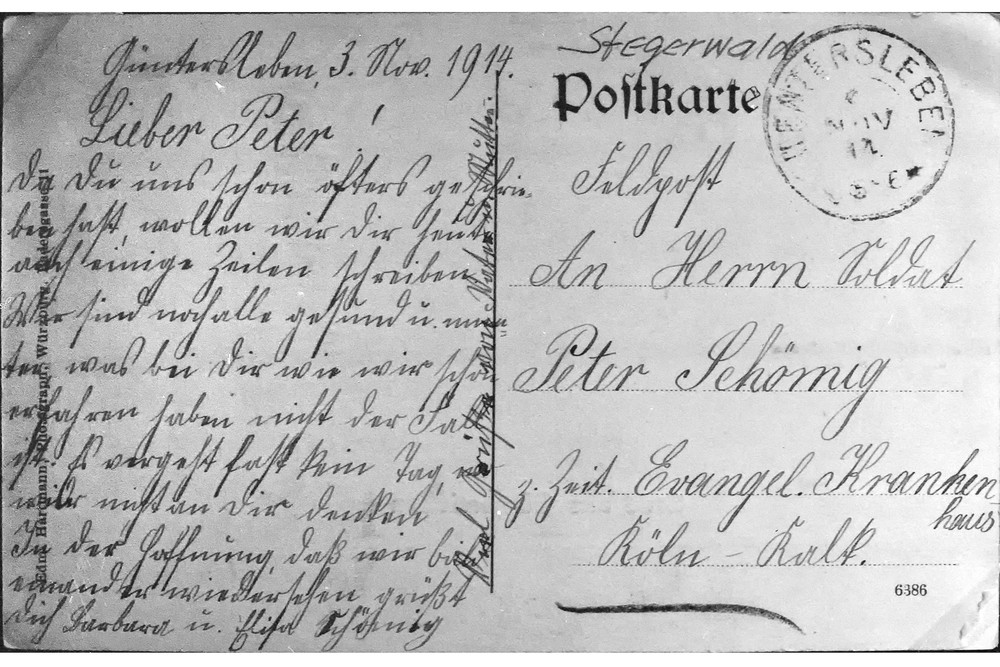 Güntersleben, 3. Nov. 1914.
Lieber Peter!
Da Du uns schon öfters geschrie-
ben hast, wollen wir Dir heute
auch einige Zeilen schreiben.
Wir sind noch alle gesund u. mun-
ter was bei Dir wie wir schon
erfahren haben nicht der Fall
ist. Es vergeht fast kein Tag, wo
wir nicht an Dir denken
In der Hoffnung, daß wir bald
einander wiedersehen grüßt
Dich Barbara u. Elisa Schömig
Viel Grüße von Vater u. Mutter
Würzburg,
Stegerwald
Postkarte
GUENTERSLEBEN
NOV
14
Feldpost
An Herrn Soldat
Peter Schömig
z. Zeit. Evangel. Kranken
haus
Köln - Kalk.
6386